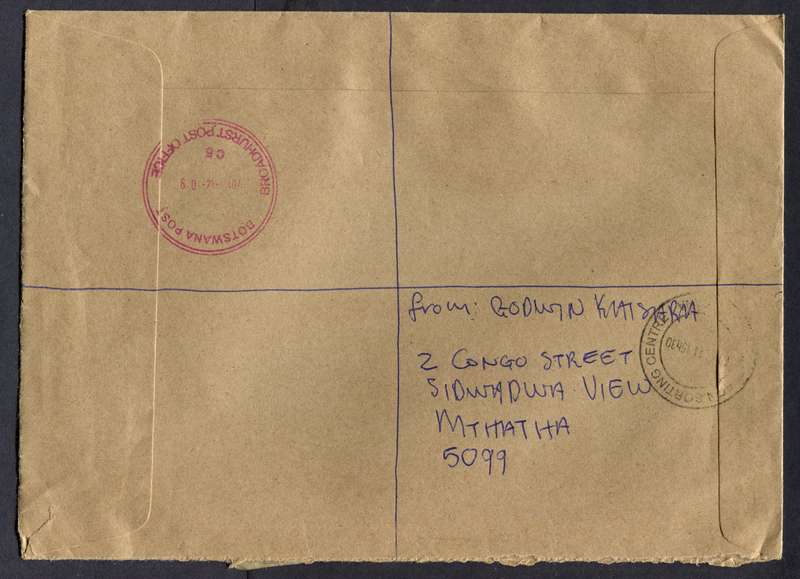 BROADHURST POST OFFICE
C5
BOTSWANA POST
from: GODWIN
2 CONGO STREET
SIDWADWA VIEW
MTHATHA
5099
SORTING CENTRE